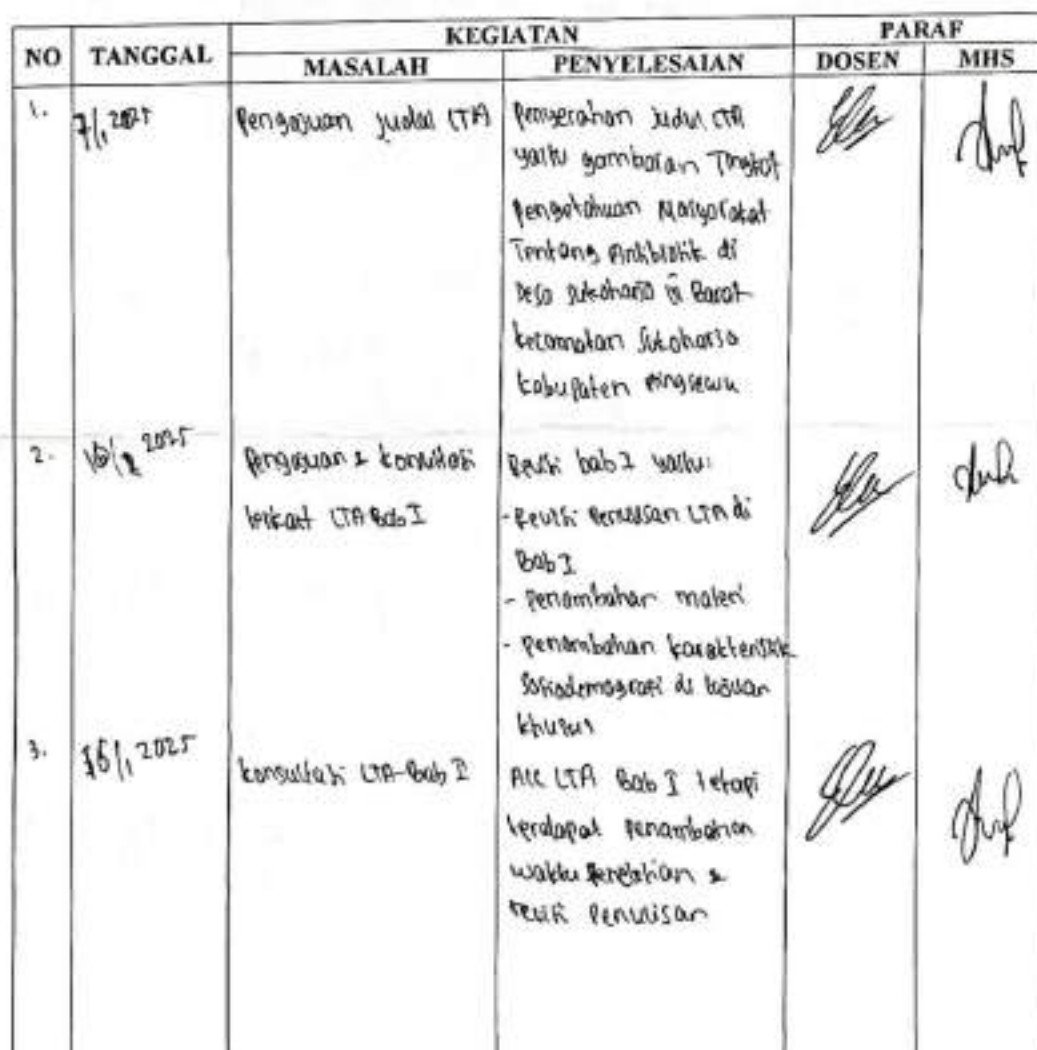 NO TANGGAL KEGIATAN PARAF
MASALAH PENYELESAIAN DOSEN MHS
1. 7/1 2025 Pengajuan judul LTA Penyerahan Judul LTA
yaitu gambaran Tingkat
pengetahuan Masyarakat
Tentang Antibiotik di
Desa Sukoharjo III Barat
kecamatan Sukoharjo
kabupaten Pringsewu
2. 2025 pengajuan & konsultasi Revisi bab I yaitu:
terkait LTA Bab I - Revisi Penulisan LTA di
Bab I
- penambahan materi
- penambahan karakteristik
sosiodemografi di tujuan
khusus
3. 16/1 2025 konsultasi LTA-Bab I ACC LTA Bab I tetapi
terdapat penambahan
waktu penelitian &
revisi penulisan